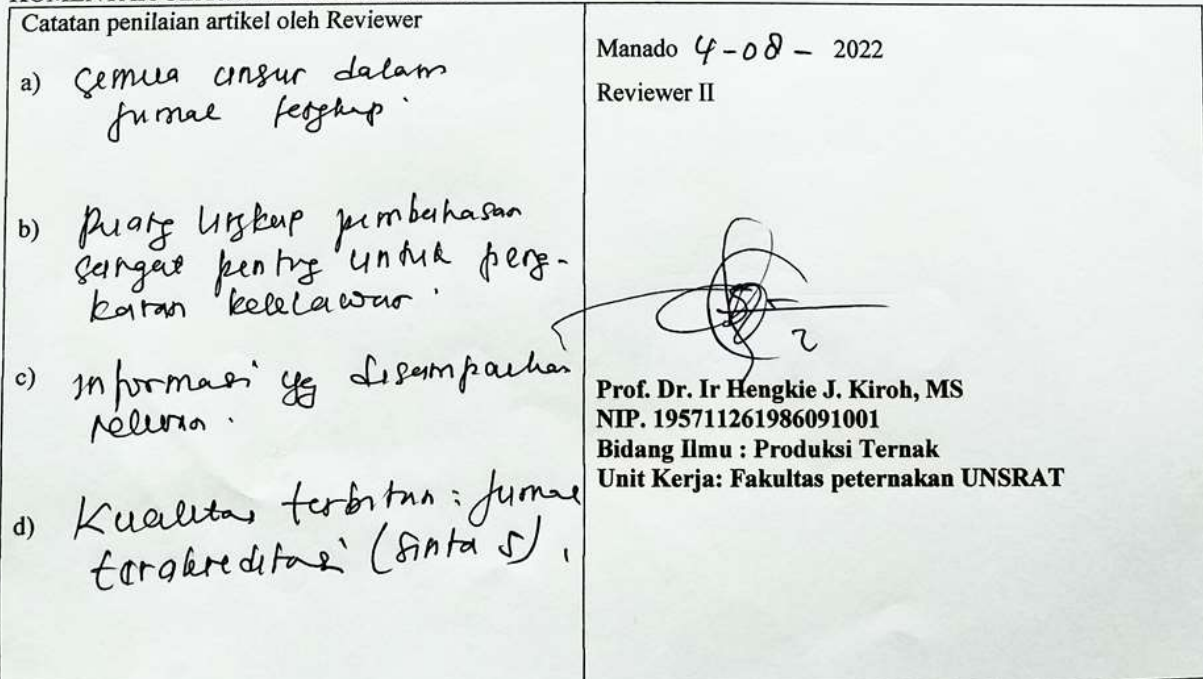 Catatan penilaian artikel oleh Reviewer
a) Semua unsur dalam
jurnal lengkap
b) Ruang lingkup pembahasan
sangat penting untuk peng-
katan kelelawar.
c) Informasi yg disampaikan
relevan.
d) Kualitas terbitan : jurnal
terakreditasi (Sinta 5).
Manado 4-08- 2022
Reviewer II
Prof. Dr. Ir Hengkie J. Kiroh, MS
NIP. 195711261986091001
Bidang Ilmu : Produksi Ternak
Unit Kerja: Fakultas peternakan UNSRAT